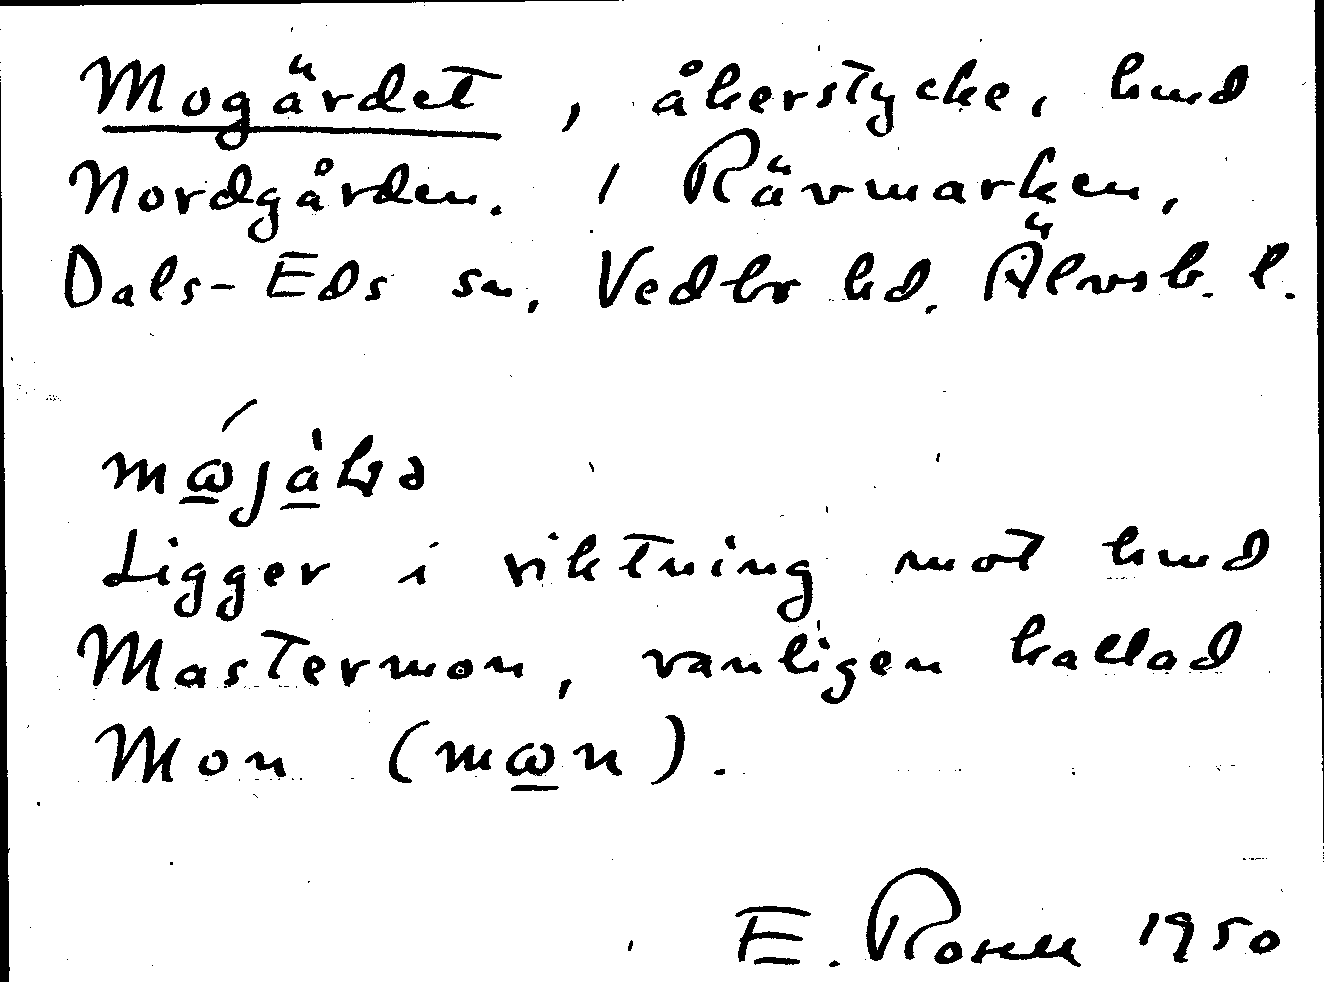 Mogärdet, åkerstycke, hmd
Nordgården. 1 Rävmarken,
Dals-Eds sn, Vedbo hd. Älvsb. l.
Ligger i riktning mot hmd
Mastermon, vanligen kallad
Mon (mωn).
E. Rosell 1950